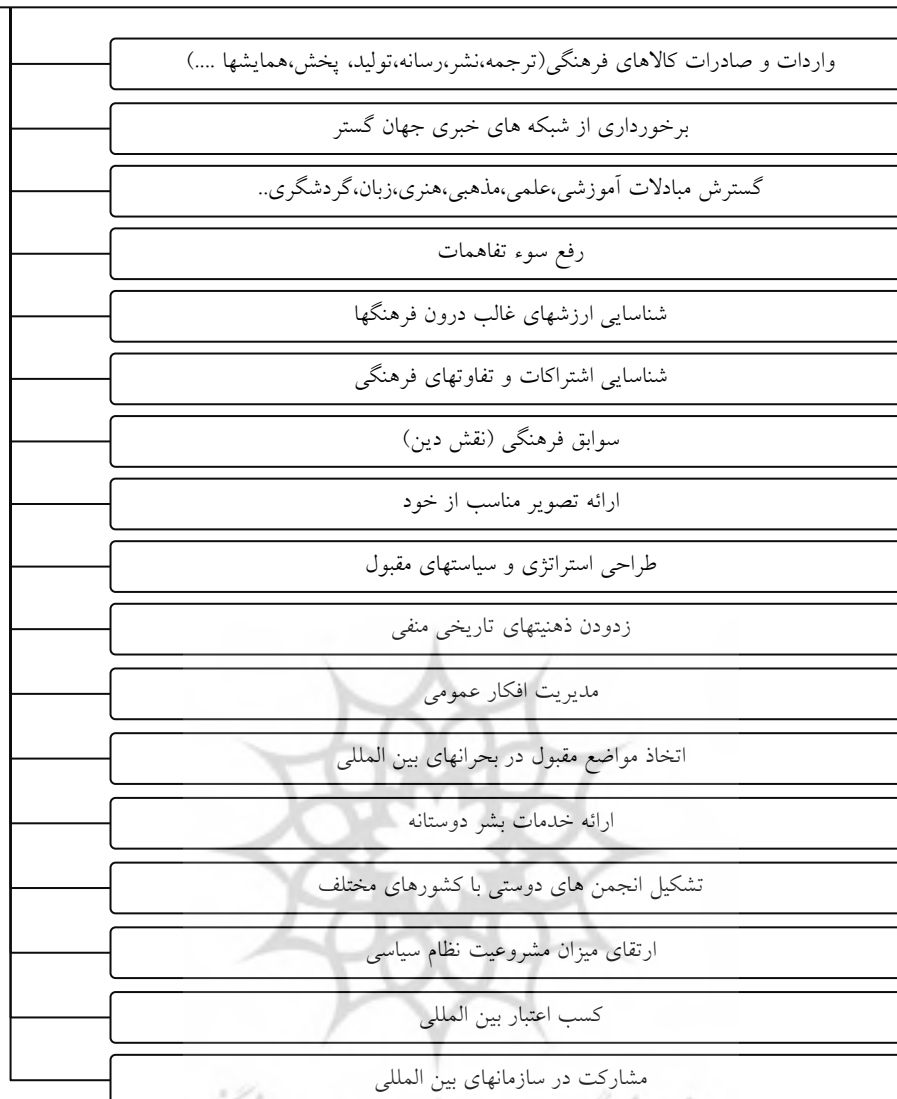 واردات و صادرات کالاهای فرهنگی(ترجمه،نشر،رسانه،تولید، پخش،همایشها ....)
برخورداری از شبکه های خبری جهان گستر
گسترش مبادلات آموزشی،علمی،مذهبی،هنری،زبان،گردشگری..
رفع سوء تفاهمات
شناسایی ارزشهای غالب درون فرهنگها
شناسایی اشتراکات و تفاوتهای فرهنگی
سوابق فرهنگی (نقش دین)
ارائه تصویر مناسب از خود
طراحی استراتژی و سیاستهای مقبول
زدودن ذهنیتهای تاریخی منفی
مدیریت افکار عمومی
اتخاذ مواضع مقبول در بحرانهای بین المللی
ارائه خدمات بشر دوستانه
تشکیل انجمن های دوستی با کشورهای مختلف
ارتقای میزان مشروعیت نظام سیاسی
کسب اعتبار بین المللی
مشارکت در سازمانهای بین المللی